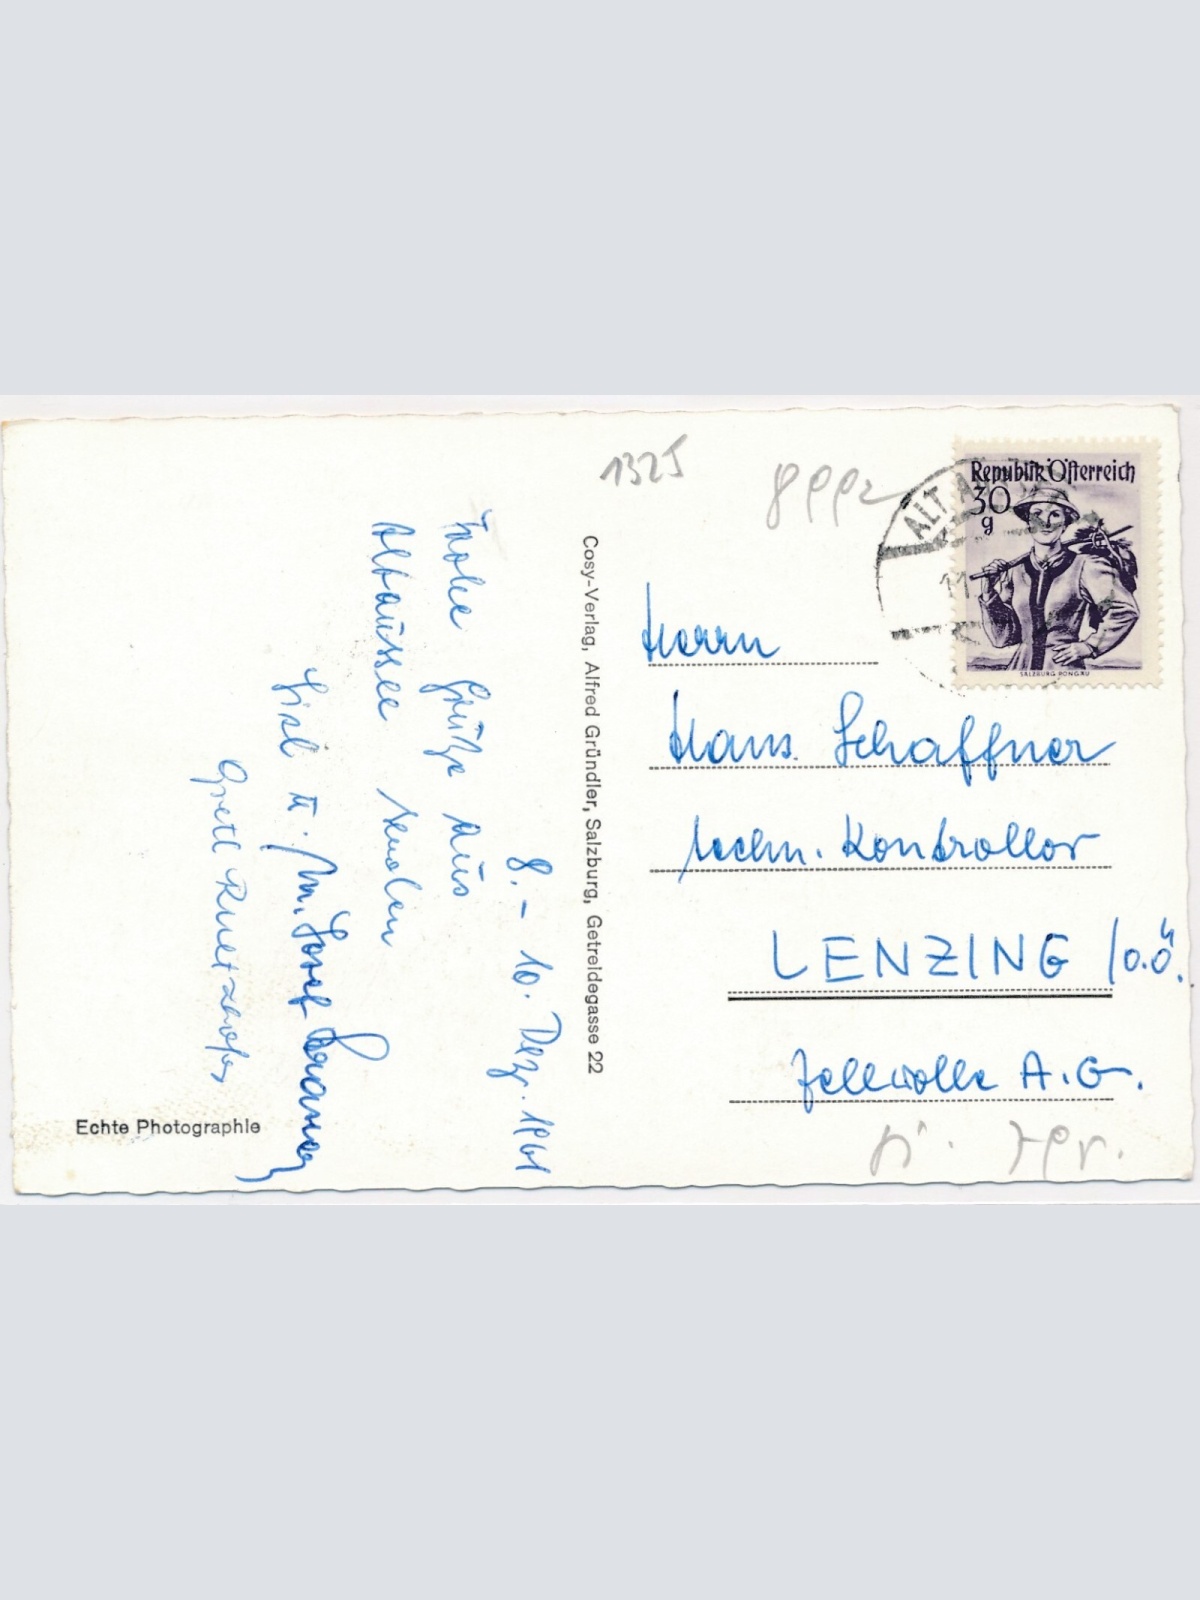 1325
Republik Österreich
30
g
SALZBURG PONGAU
ALT A
11
Herrn
Hans Schaffner
techn. Kontrollor
LENZING /O.Ö.
Zellwolle A.G.
Cosy-Verlag, Alfred Gründler, Salzburg, Getreidegasse 22
8. – 10. Dez. 1961
Frohe Grüße aus
Altaussee senden
Lisl u. M. Josef
Gretl
Echte Photographie